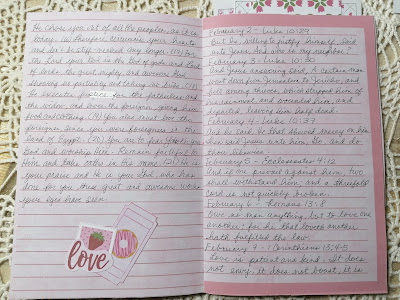 He chose you out of all the people, as it is
today. (16) Therefore circumcise your hearts
and don't be stiff-necked any longer. (17) For
the Lord your God is the God of gods and Lord
of lords, the great, mighty, and awesome God
showing no partiality and taking no bribe. (18)
He executes justice for the fatherless and
the widow, and loves the foreigner, giving them
food and clothing. (19) You also must love the
foreigner, since you were foreigners in the
land of Egypt. (20) You are to fear the
God and worship Him. Remain faithful to
Him and take oaths in His name. (21) He is
your praise and He is your God, who has
done for you these great and awesome works
your eyes have seen.
love
February 2 - Luke 10:29
But he, willing to justify himself, said
unto Jesus, And who is my neighbor?
February 3 - Luke 10:30
And Jesus answering said, A certain man
went down from Jerusalem to Jericho, and
fell among thieves, which stripped him of
his raiment, and wounded him, and
departed, leaving him half dead.
February 4 - Luke 10:37
And he said, He that showed mercy on him.
Then said Jesus unto him, Go, and do
thou likewise.
February 5 - Ecclesiastes 4:12
And if one prevail against him, two
shall withstand him; and a threefold
cord is not quickly broken.
February 6 - Romans 13:8
Owe no man anything, but to love one
another: for he that loveth another
hath fulfilled the law.
February 7 - 1 Corinthians 13:4-5
Love is patient and kind. It does
not envy, it does not boast, it is